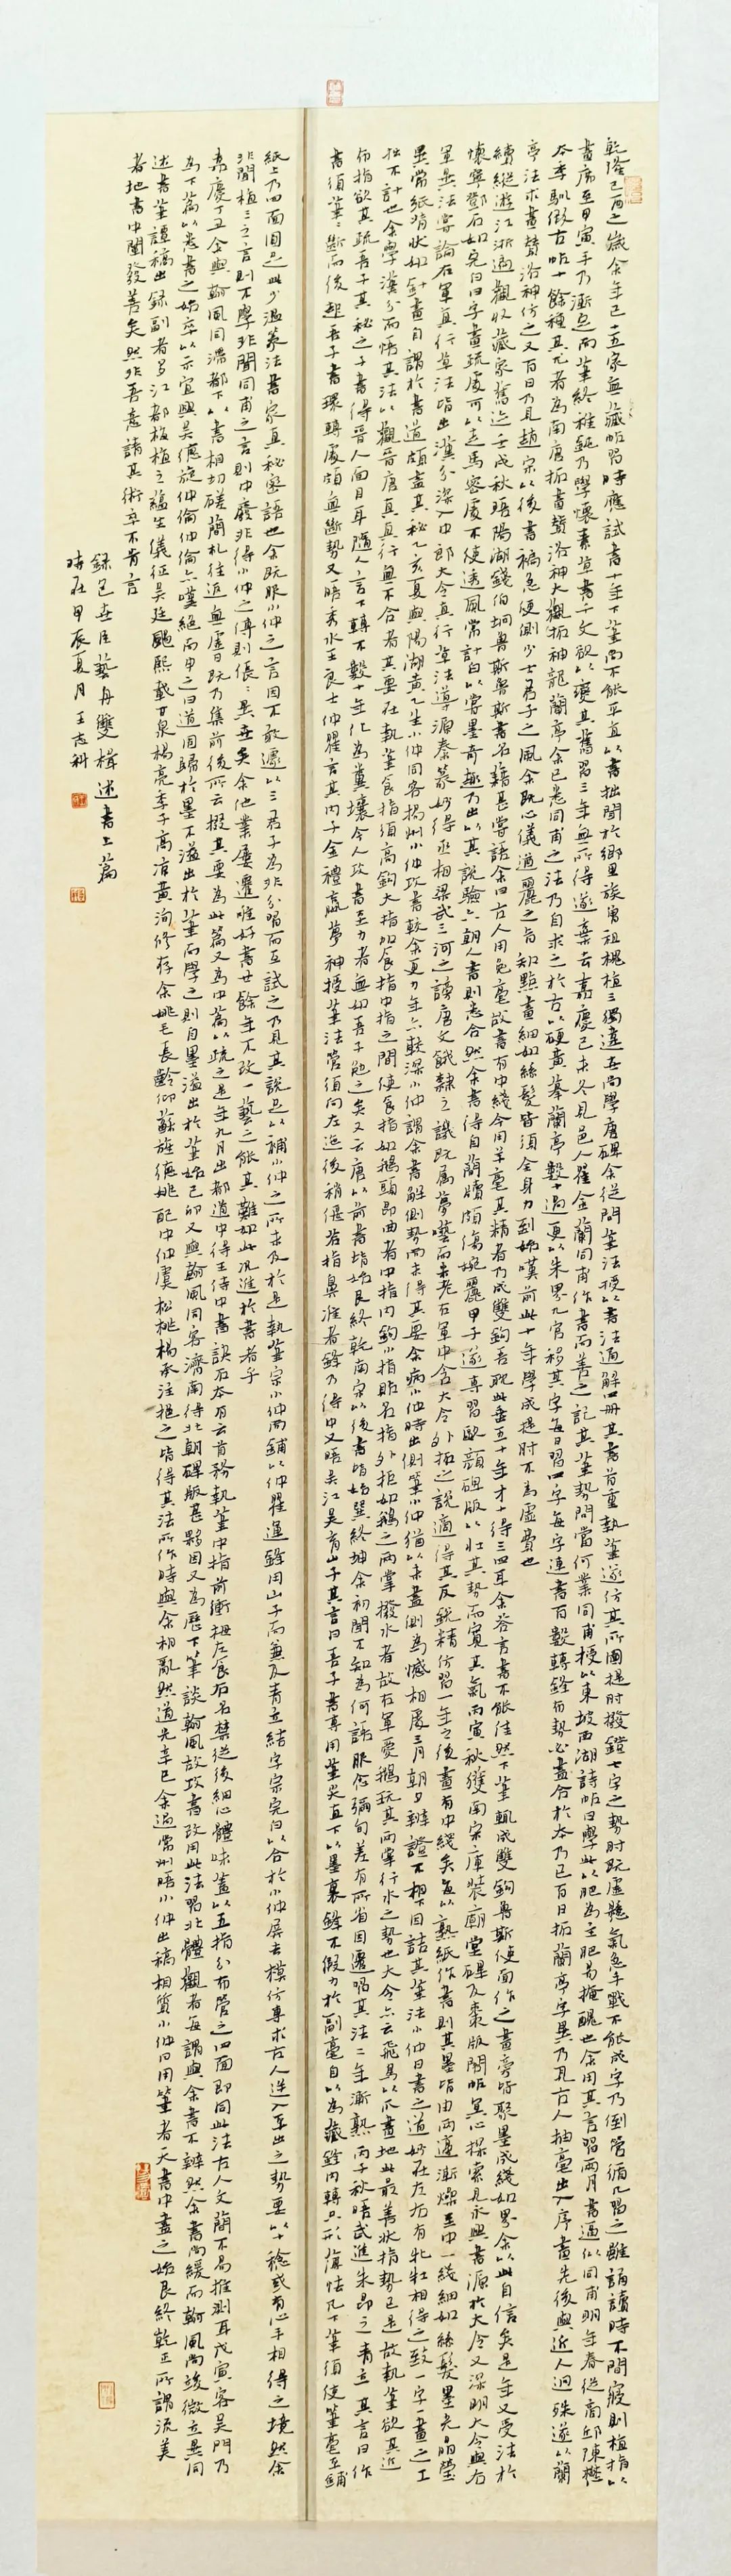 乾隆己酉之歲余年已十五家無藏帖習時應試書十年下筆尚不能平直以書拙聞於鄉里族曾祖槐植三獨違世尚學唐碑余從問筆法授以書法通解四冊其書首重執筆遂仿其所圖提肘撥鐙七字之勢肘既虛懸氣急手戰不能成字乃倒管循几習之雖誦讀時不間寢則植指以
畫席至甲寅手乃漸定而筆終稚鈍乃學懷素草書千文欲以變其舊習三年無所得遂棄去嘉慶己未冬見邑人翟金蘭同甫作書而善之記其筆勢問當何業同甫授以東坡西湖詩帖曰學此以肥為主肥易掩醜也余用其言習兩月書逼似同甫明年春從商邱陳懋
本季馴假古帖十餘種其尤者為南唐拓畫贊洛神大觀拓神龍蘭亭余已悉同甫之法乃自求之於古以硬黃摹蘭亭數十過更以朱界九宮移其字每日習四字每字連書百數轉鋒布勢必盡合於本乃已百日拓蘭亭字畢乃見古人抽毫出入序畫先後與近人迥殊遂以蘭
亭法求畫贊洛神仿之又百日乃見趙宋以後書褊急便側少士君子之風余既心儀遒麗之旨知點畫細如絲髮皆須全身力到始嘆前此十年學成提肘不為虛費也
續縱遊江浙遍觀收藏家舊迹壬戌秋晤陽湖錢伯坰魯斯魯斯書名藉甚嘗語余曰古人用兔毫故書有中綫今用羊毫其精者乃成雙鉤吾耽此垂五十年才十得三四耳余答言書不能佳然下筆輒成雙鉤魯斯使面作之畫旁皆聚墨成綫如界余以此自信矣是年又受法於
懷寧鄧石如完白曰字畫疏處可以走馬密處不使透風常計白以當墨奇趣乃出以其說驗六朝人書則悉合然余書得自簡牘頗傷婉麗甲子遂專習歐顏碑版以壯其勢而寬其氣丙寅秋獲南宋庫裝廟堂碑及棗版閣帖冥心探索見永興書源於大令又深明大令與右
軍異法嘗論右軍真行草法皆出漢分深入中郎大令真行草法導源秦篆妙得丞相梁武三河之謗唐文餓隸之譏既属夢囈而米老右軍中含大令外拓之說適得其反銳精仿習一年之後畫有中綫矣每以熟紙作書則其墨皆由兩邊漸燥至中一綫細如絲髮墨光晶瑩
異常紙背狀如針畫自謂於書道頗盡其秘乙亥夏與陽湖黃乙生小仲同客揚州小仲攻書較余更力年亦較深小仲謂余書解側勢而未得其要余病小仲時出側筆小仲猶以未盡側為憾相處三月朝夕辨證不相下因詰其筆法小仲曰書之道妙在左右有牝牡相得之致一字一畫之工
拙不計也余學漢分而悟其法以觀晉唐真行無不合者其要在執筆食指須高鉤大指加食指中指之間使食指如鵝頭昂曲者中指內鉤小指貼名指外拒如鵝之兩掌撥水者故右軍愛鵝玩其兩掌行水之勢也大令亦云飛鳥以爪畫地此最善狀指勢已是故執筆欲其近
布指欲其疏吾子其秘之子書得晉人面目耳隨人言下轉不數十年化為糞壤今人攻書至力者無如吾子勉之矣又云唐以前書皆始艮終乾南宋以後書皆始巽終坤余初聞不知為何語服念彌旬差有所省因遷習其法二年漸熟丙子秋晤武進朱昂之青立其言曰作
書須筆筆斷而後起吾子書環轉處頗無斷勢又晤秀水王良士仲瞿言其內子金禮嬴夢神授筆法管須向左迤後稍偃若指鼻準者鋒乃得中又晤吳江吳育山子其言曰吾子書專用筆尖直下以墨裹鋒不假力於副毫自以為藏鋒內轉只形薄怯凡下筆須使筆毫平鋪
紙上乃四面圓足此少溫篆法書家真秘密語也余既服小仲之言因不敢遽以三君子為非分習而互試之乃見其說足以補小仲之所未及於是執筆宗小仲而輔以仲瞿運鋒用山子而兼及青立結字宗完白以合於小仲屏去模仿專求古人逆入平出之勢要以十稔或有心手相得之境然余
非聞植三之言則不學非聞同甫之言則中廢非得小仲之傳則倀倀畢世矣余他業屢遷唯好書廿餘年不改一藝之能其難如此況進於書者乎
嘉慶丁丑余與翰風同滯都下以書相切磋簡札往返無虛日既乃集前後所云掇其要為此篇又為中篇以疏之是年九月出都道中得王侍中書訣石本有云首務執筆中指前衝拇左食右名禁從後細心體味蓋以五指分布管之四面即同此法古人文簡不易推測耳戊寅客吳門乃
為下篇以悉書之始卒以示宜興吳德旋仲倫仲倫亦嘆絕而申之曰道固歸於墨不溢出於筆而學之則自墨溢出於筆始己卯又與翰風同客濟南得北朝碑版甚夥因又為歷下筆談翰風故攻書改用此法習北體觀者每謂與余書不辨然余書尚緩而翰風尚竣微立異同
述書筆譚稿出錄副者多江都梅植之蘊生儀征吳廷颺熙載甘泉楊亮季子高涼黃洵修存余姚毛長齡仰蘇旌德姚配中仲虞松桃楊承注挹之皆得其法所作時與余相亂然道光辛巳余過常州晤小仲出稿相質小仲曰用筆者天書中盡之始艮終乾正所謂流美
者地書中闡發善矣然非吾意諸其術卒不肯言
錄包世臣藝舟雙楫述書上篇
時在甲辰夏月王志科